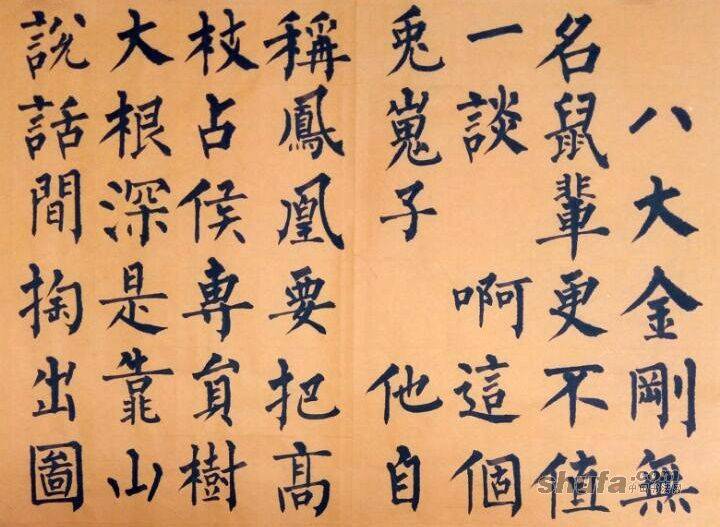 八大金剛無
名鼠輩更不值
一談 啊這個
兎嵬子 他自
稱鳳凰要把高
枝占侯專貟樹
大根深是靠山
說話間掏出圖
shufa.com
中国书法网